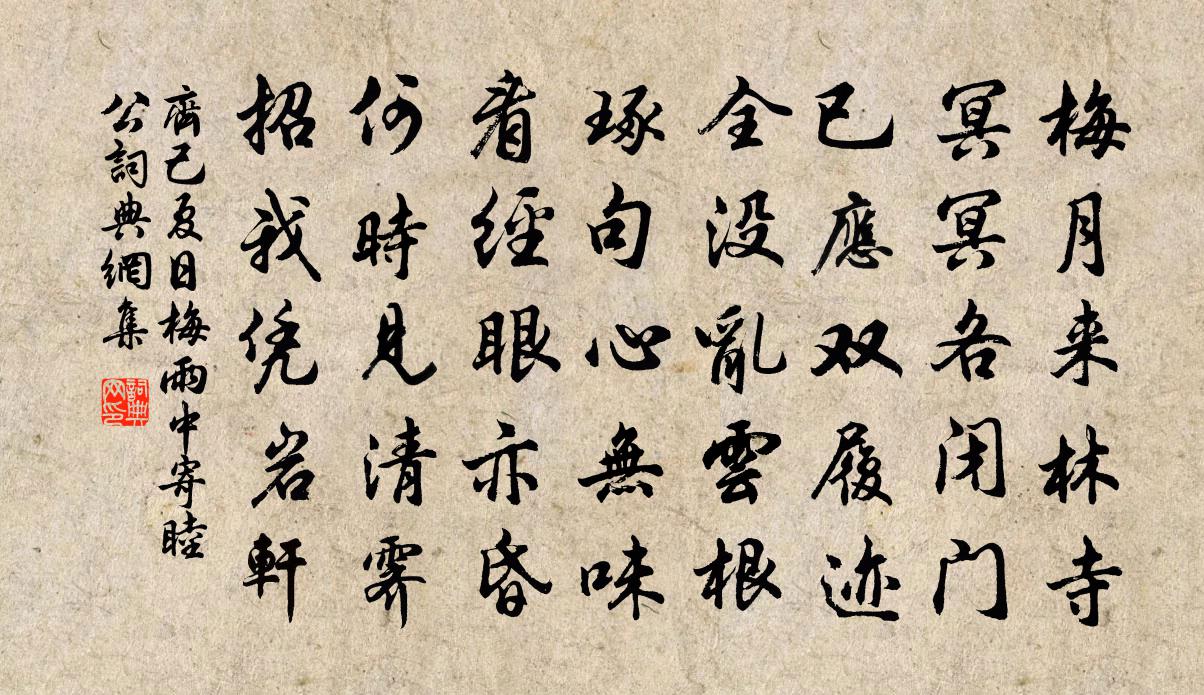 梅月来林寺
冥冥各闭门
已應双履迹
全没亂雲根
琢句心無味
看經眼亦昏
何時見清霁
招我凭岩軒
齊己夏日梅雨中寄睦
公詞典網集
詞典
网印